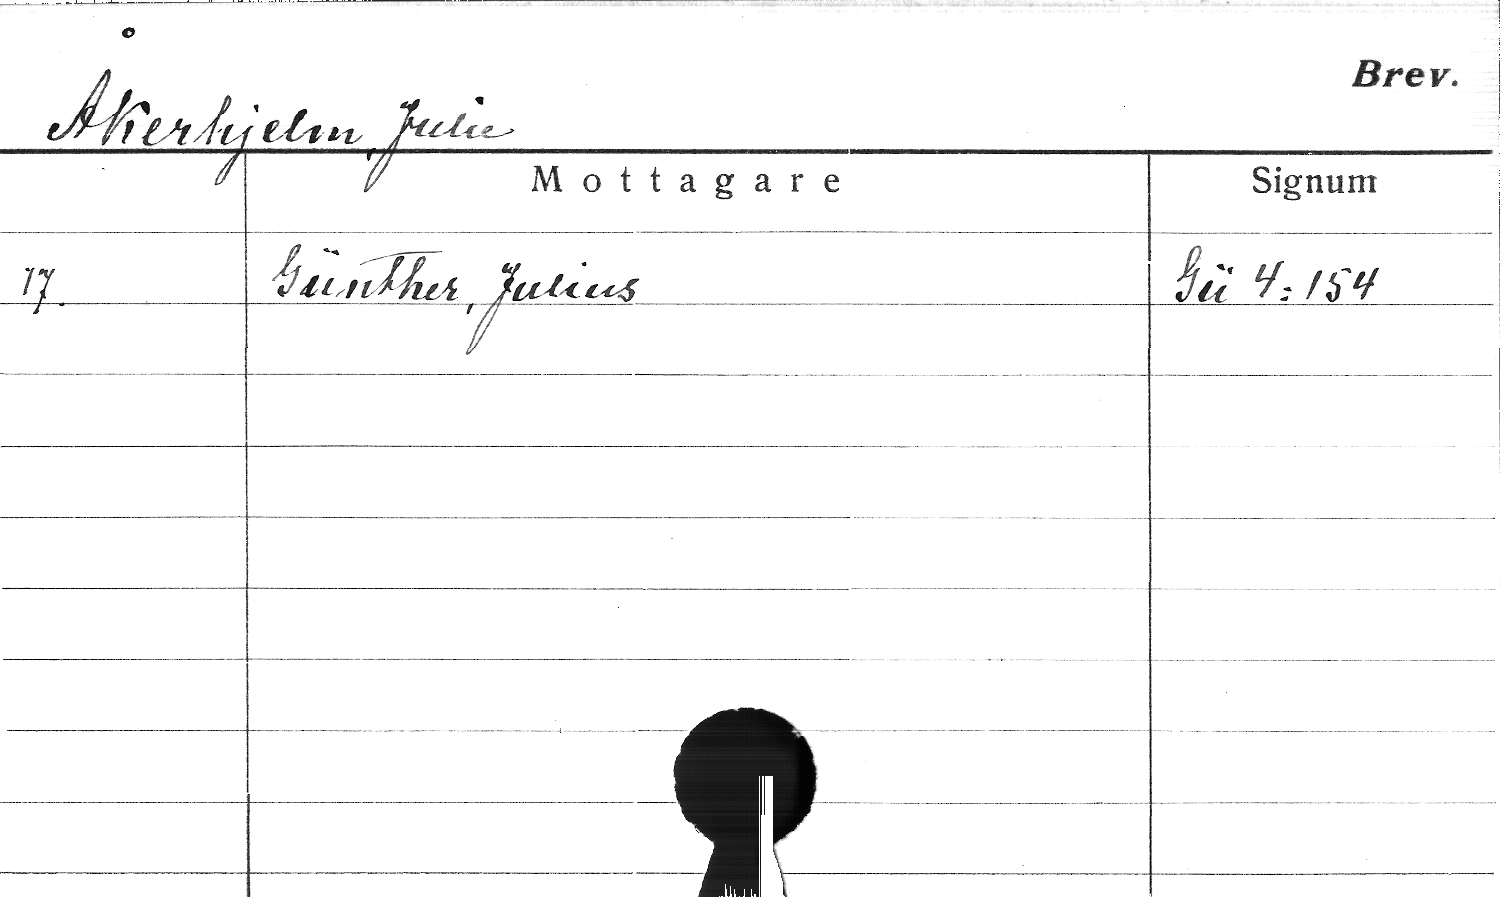 Brev.
Åkerhjelm, Julie
Mottagare Signum
17. Günther, Julius Gü 4:154